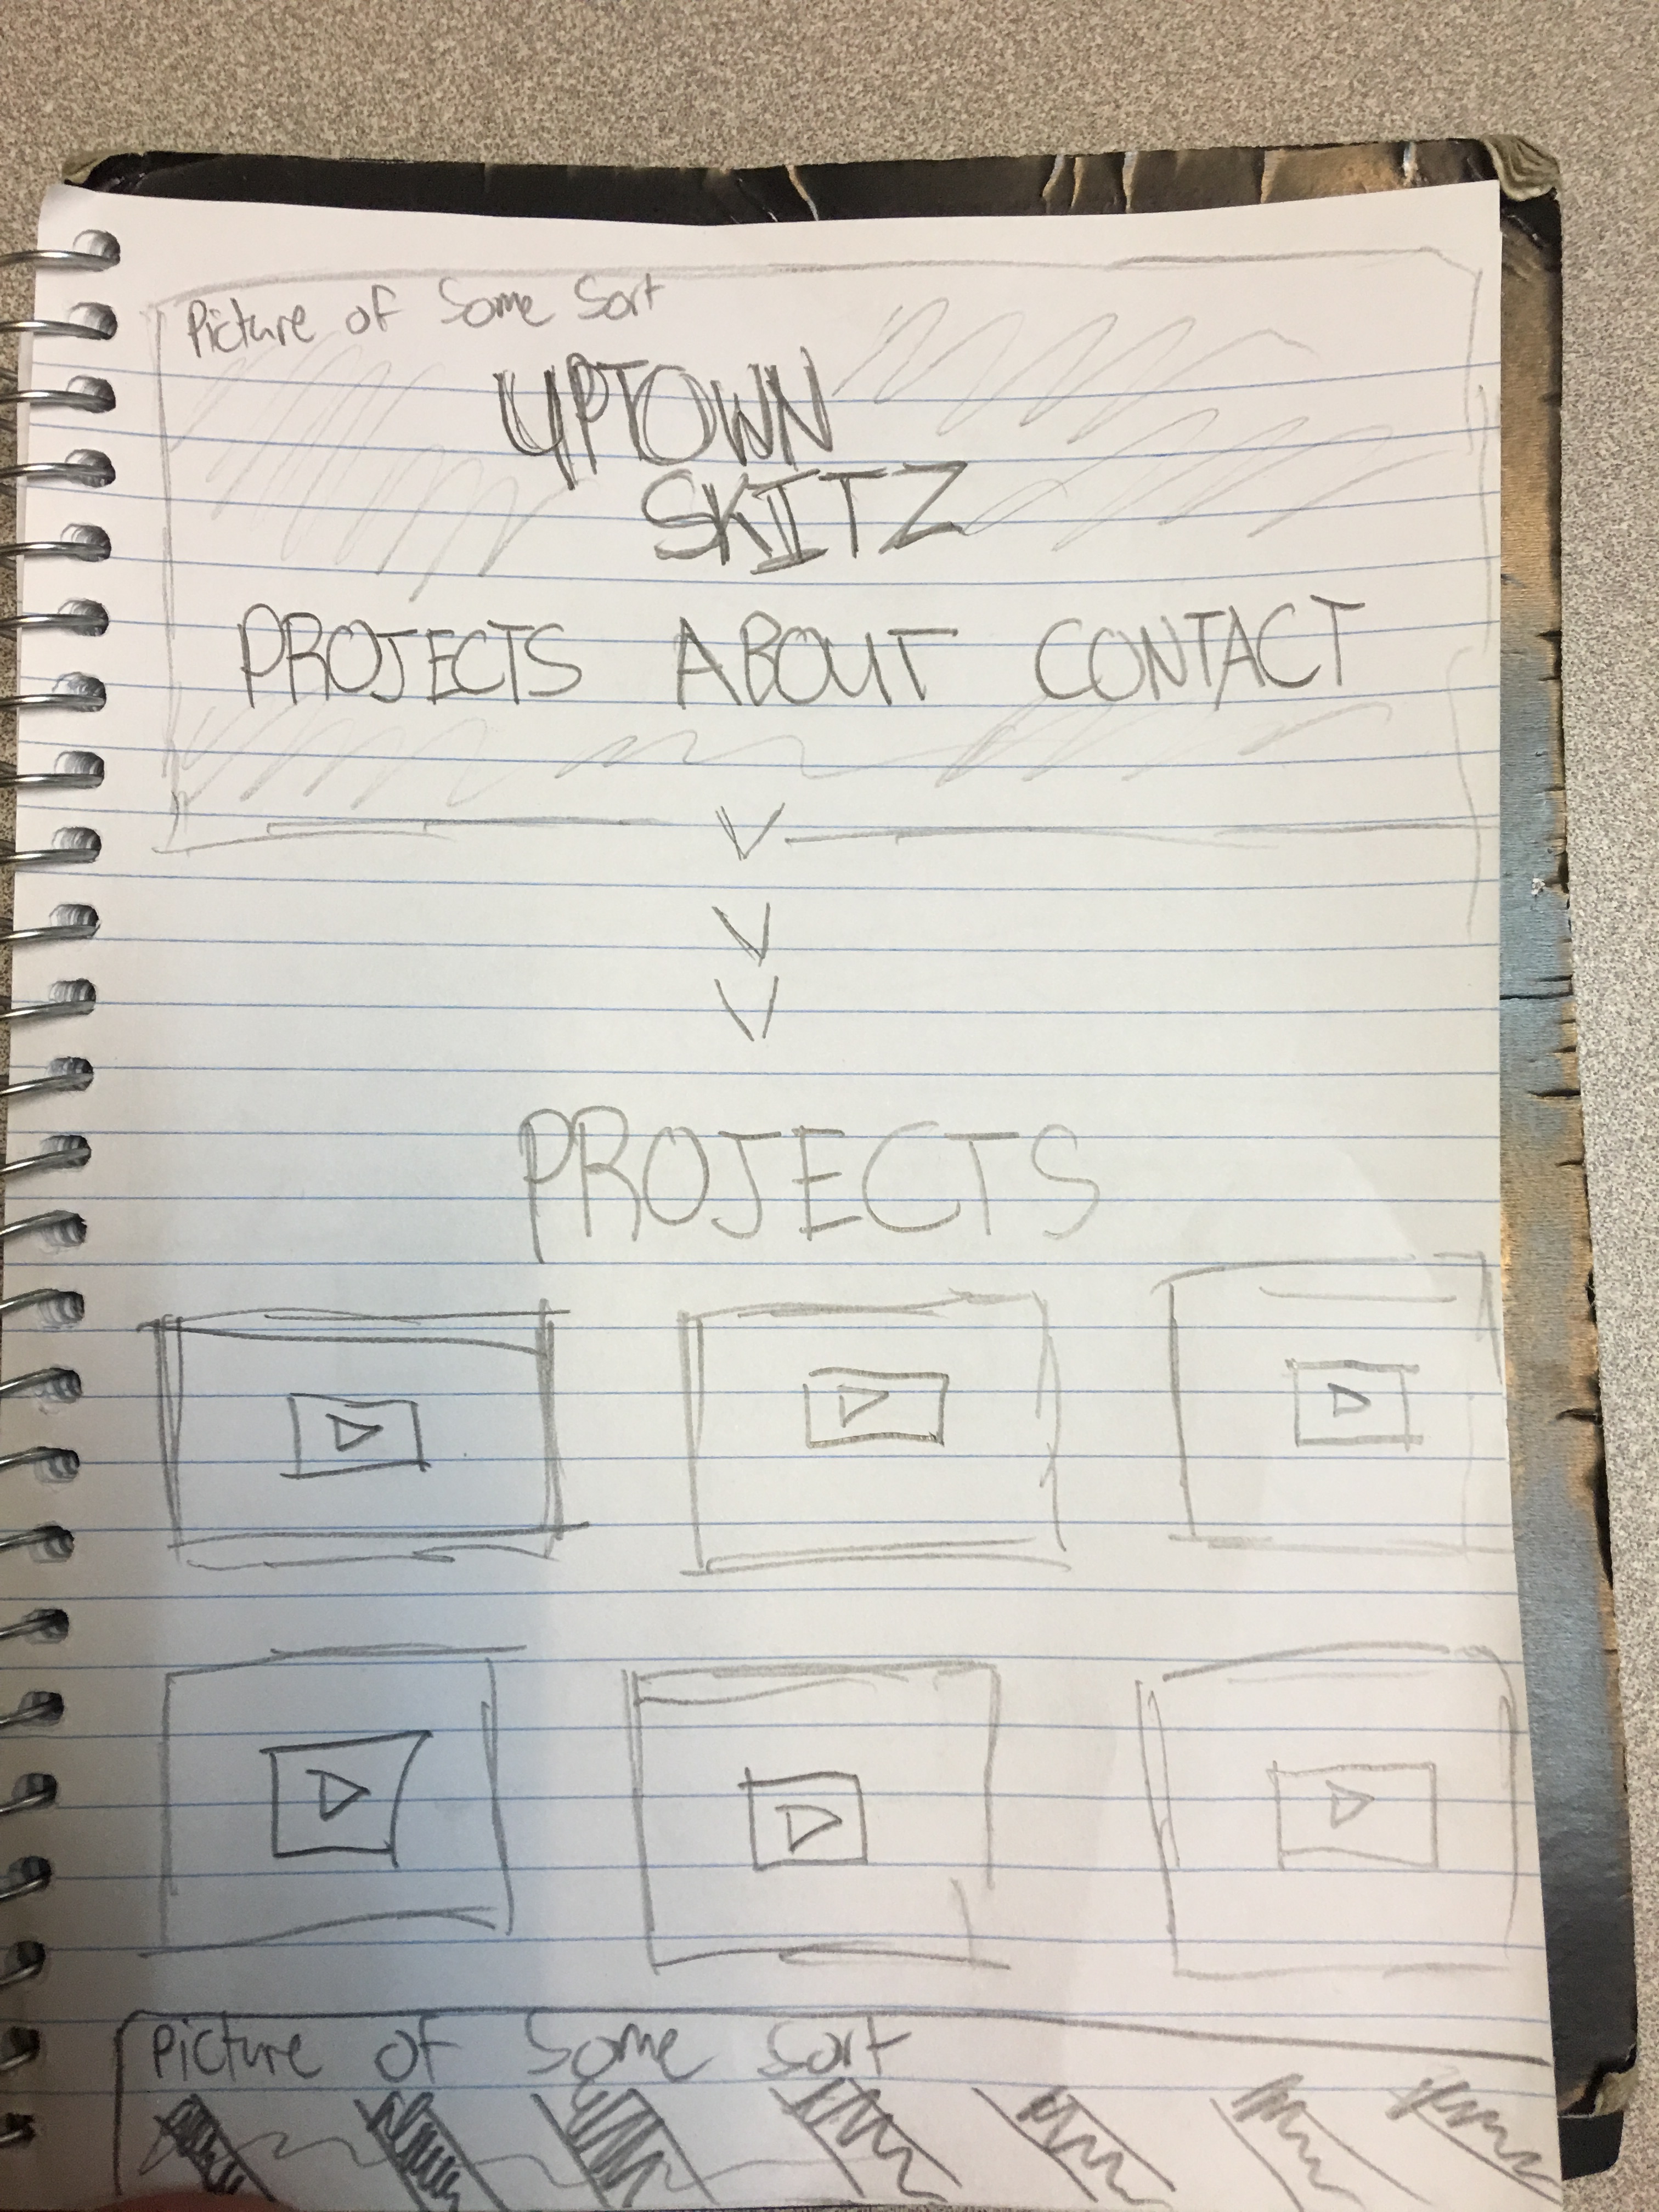 Picture of Some Sort
UPTOWN
SKITZ
PROJECTS ABOUT CONTACT
PROJECTS
Picture of Some Sort